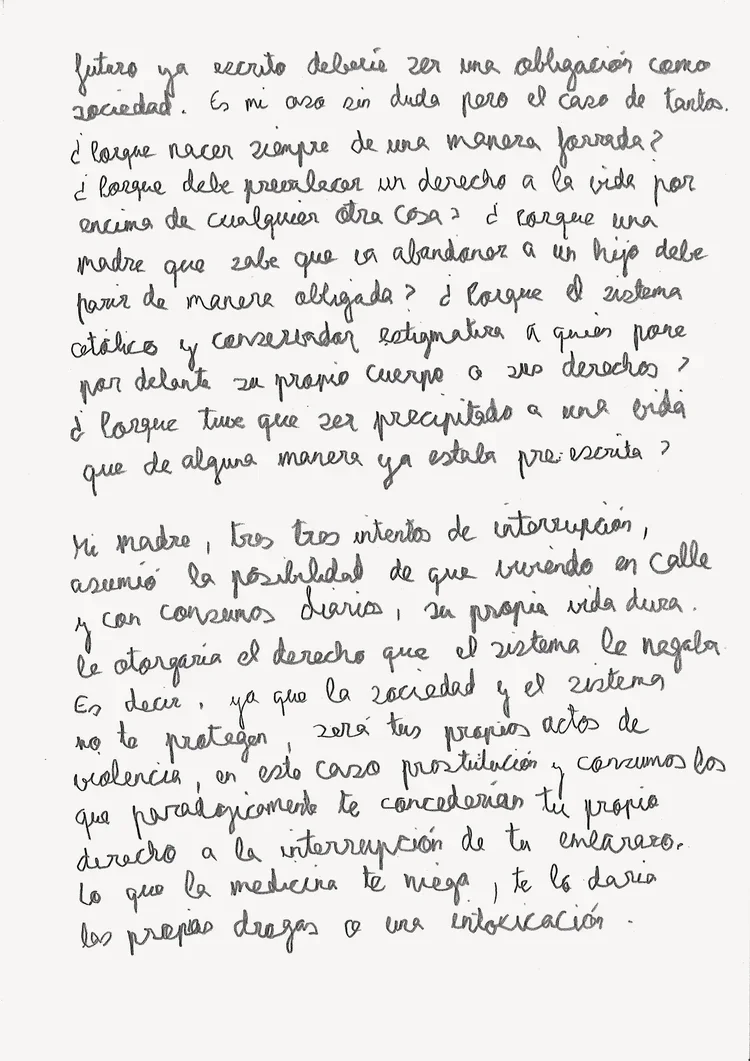 futuro ya escrito debería ser una obligación como
sociedad. Es mi caso sin duda pero el caso de tantos.
¿Porque nacer siempre de una manera forzada?
¿Porque debe prevalecer un derecho a la vida por
encima de cualquier otra cosa? ¿Porque una
madre que sabe que va abandonar a un hijo debe
parir de manera obligada? ¿Porque el sistema
católico y conservador estigmatiza a quien pone
por delante su propio cuerpo o sus derechos?
¿Porque tuve que ser precipitado a una vida
que de alguna manera ya estaba pre-escrita?
Mi madre, tras tres intentos de interrupción,
asumió la posibilidad de que viviendo en calle
y con consumos diarios, su propia vida dura.
le otorgaría el derecho que el sistema le negaba
Es decir, ya que la sociedad y el sistema
no te protegen, será tus propios actos de
violencia, en este caso prostitución y consumos los
que paradogicamente te concederían tu propio
derecho a la interrupción de tu embarazo.
Lo que la medicina te niega, te lo daria
las propias drogas o una intoxicación.